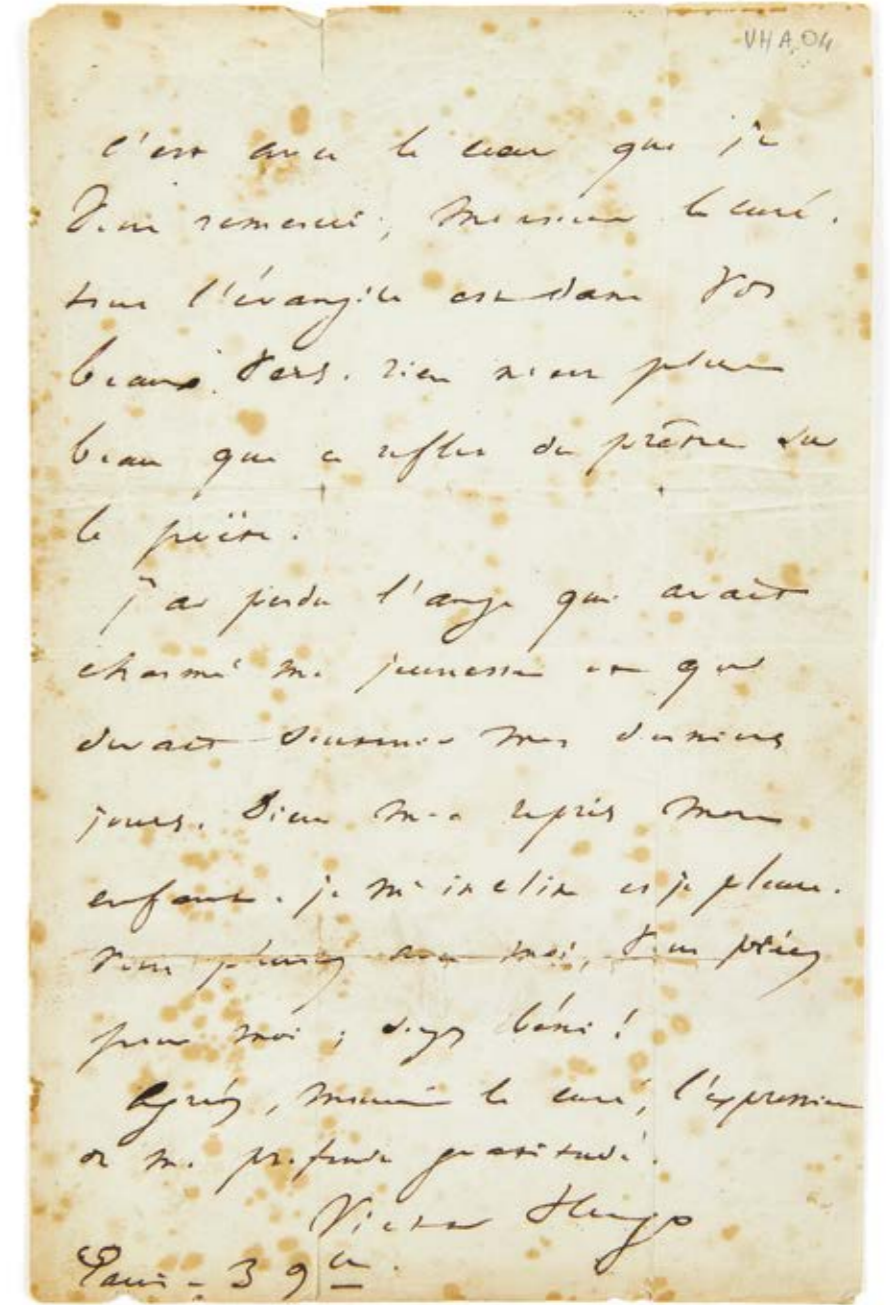 VHA,04
C'est avec le cœur que je
vous remercie, Monsieur le curé.
tout l'évangile est dans vos
beaux vers. rien n'est plus
beau que ce reflet du prêtre sur
le poëte.
j'ai perdu l'ange qui avait
charmé ma jeunesse et qui
devait soutenir mes derniers
jours. Dieu m'a repris mon
enfant. je m'incline et je pleure.
vous pleurez avec moi, vous priez
pour moi ; soyez béni !
Agréez, Monsieur le curé, l'expression
de ma profonde gratitude.
Victor Hugo
Paris - 3 9<sup>bre</sup>.